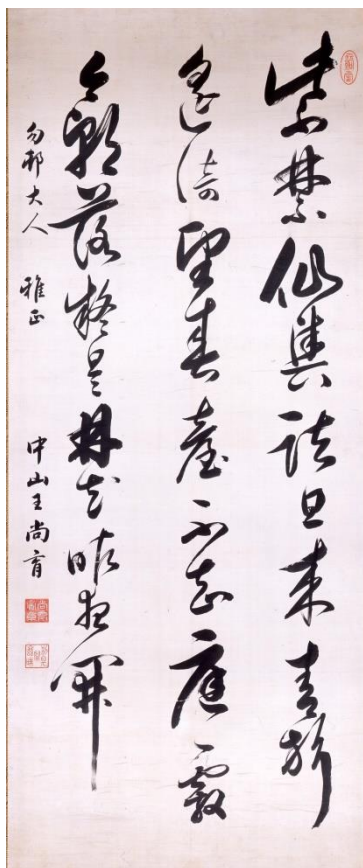 紫禁仙輿詰旦来青旂
遥倚望春臺不知庭霰
今朝落疑是林花昨夜開
勿邨大人 雅正
中山王尚育